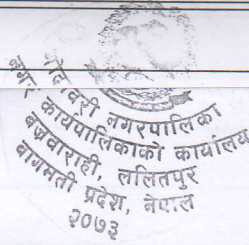 गोदावरी नगरपालिका
नगर कार्यपालिकाको कार्यालय
बज्रवाराही, ललितपुर
बागमती प्रदेश, नेपाल
२०७३